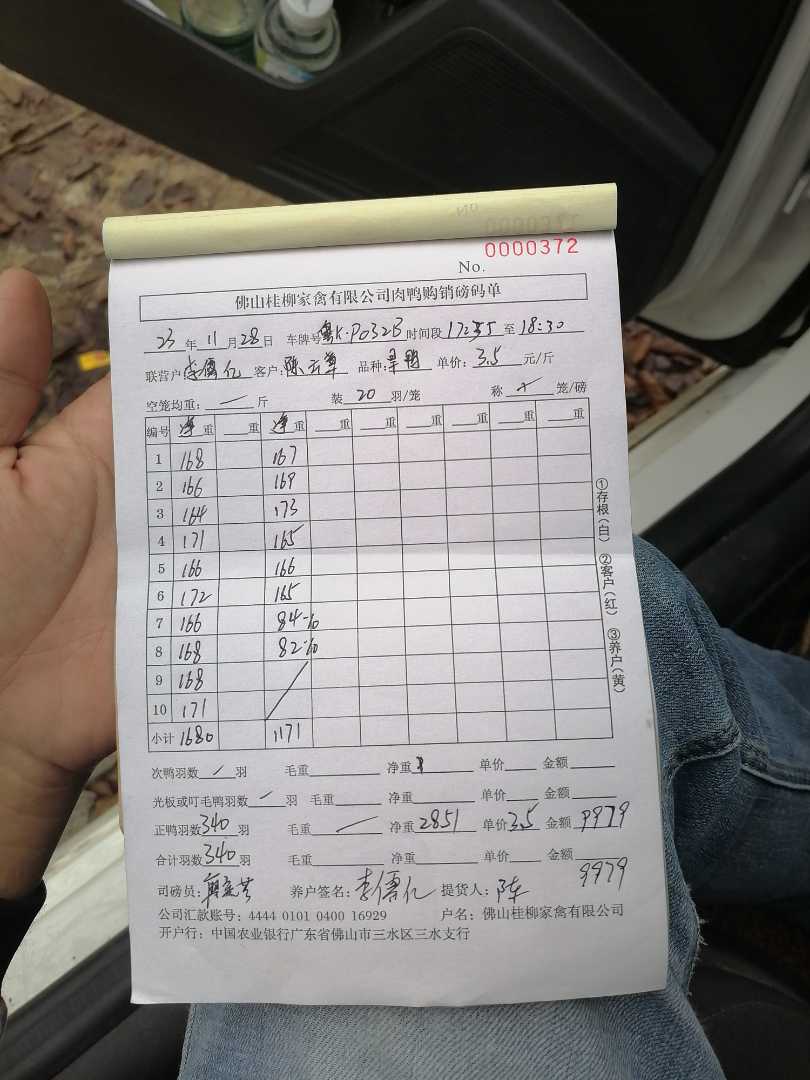 0000372
No.
佛山桂柳家禽有限公司肉鸭购销磅码单
23 年 11 月 28 日 车牌号 粤K·P032B 时间段 至 18:30
联营户 李儒亿 客户: 陈云 品种: 单价: 3.5 元/斤
空笼均重: 一 斤 装 20 羽/笼 称 笼/磅
编号 净重 重 净重 重 重 重 重 重 重
1 168 167
2 166 169
3 164 173
4 171 165
5 166 166
6 172 165
7 166 84-10
8 168 82-10
9 168
10 171
小计 1680 1171
①存根(白) ②客户(红) ③养户(黄)
次鸭羽数 / 羽 毛重 净重 单价 金额
光板或叮毛鸭羽数 一 羽 毛重 净重 单价 金额
正鸭羽数 340 羽 毛重 / 净重 2851 单价 3.5 金额 9979
合计羽数 340 羽 毛重 净重 单价 金额 9979
司磅员: 养户签名: 李儒亿 提货人: 陈
公司汇款账号: 4444 0101 0400 16929 户名: 佛山桂柳家禽有限公司
开户行: 中国农业银行广东省佛山市三水区三水支行